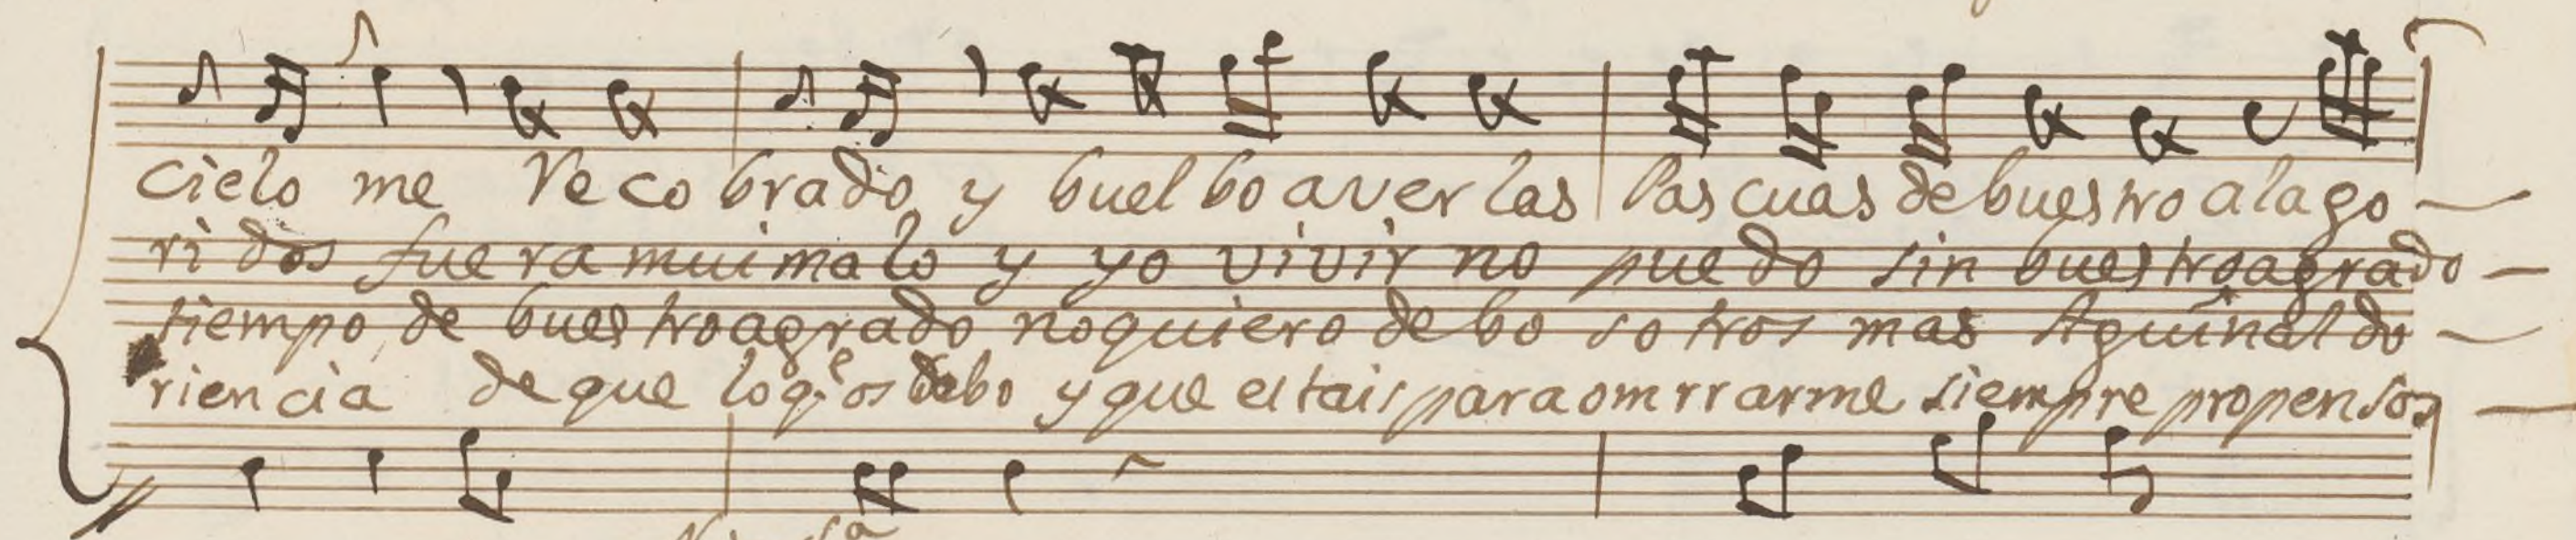 Cielo me Re co brado y buel bo a ver las Pas cuas de bues tro a la go
ri dos fue ra mui ma lo y yo vivir no pue do sin bues tro agrado
tiempo de bues tro agrado no quiero de bo so tros mas Aguinal do
riencia de que lo q.e os debo y que es tais para om rrarme siempre propensos